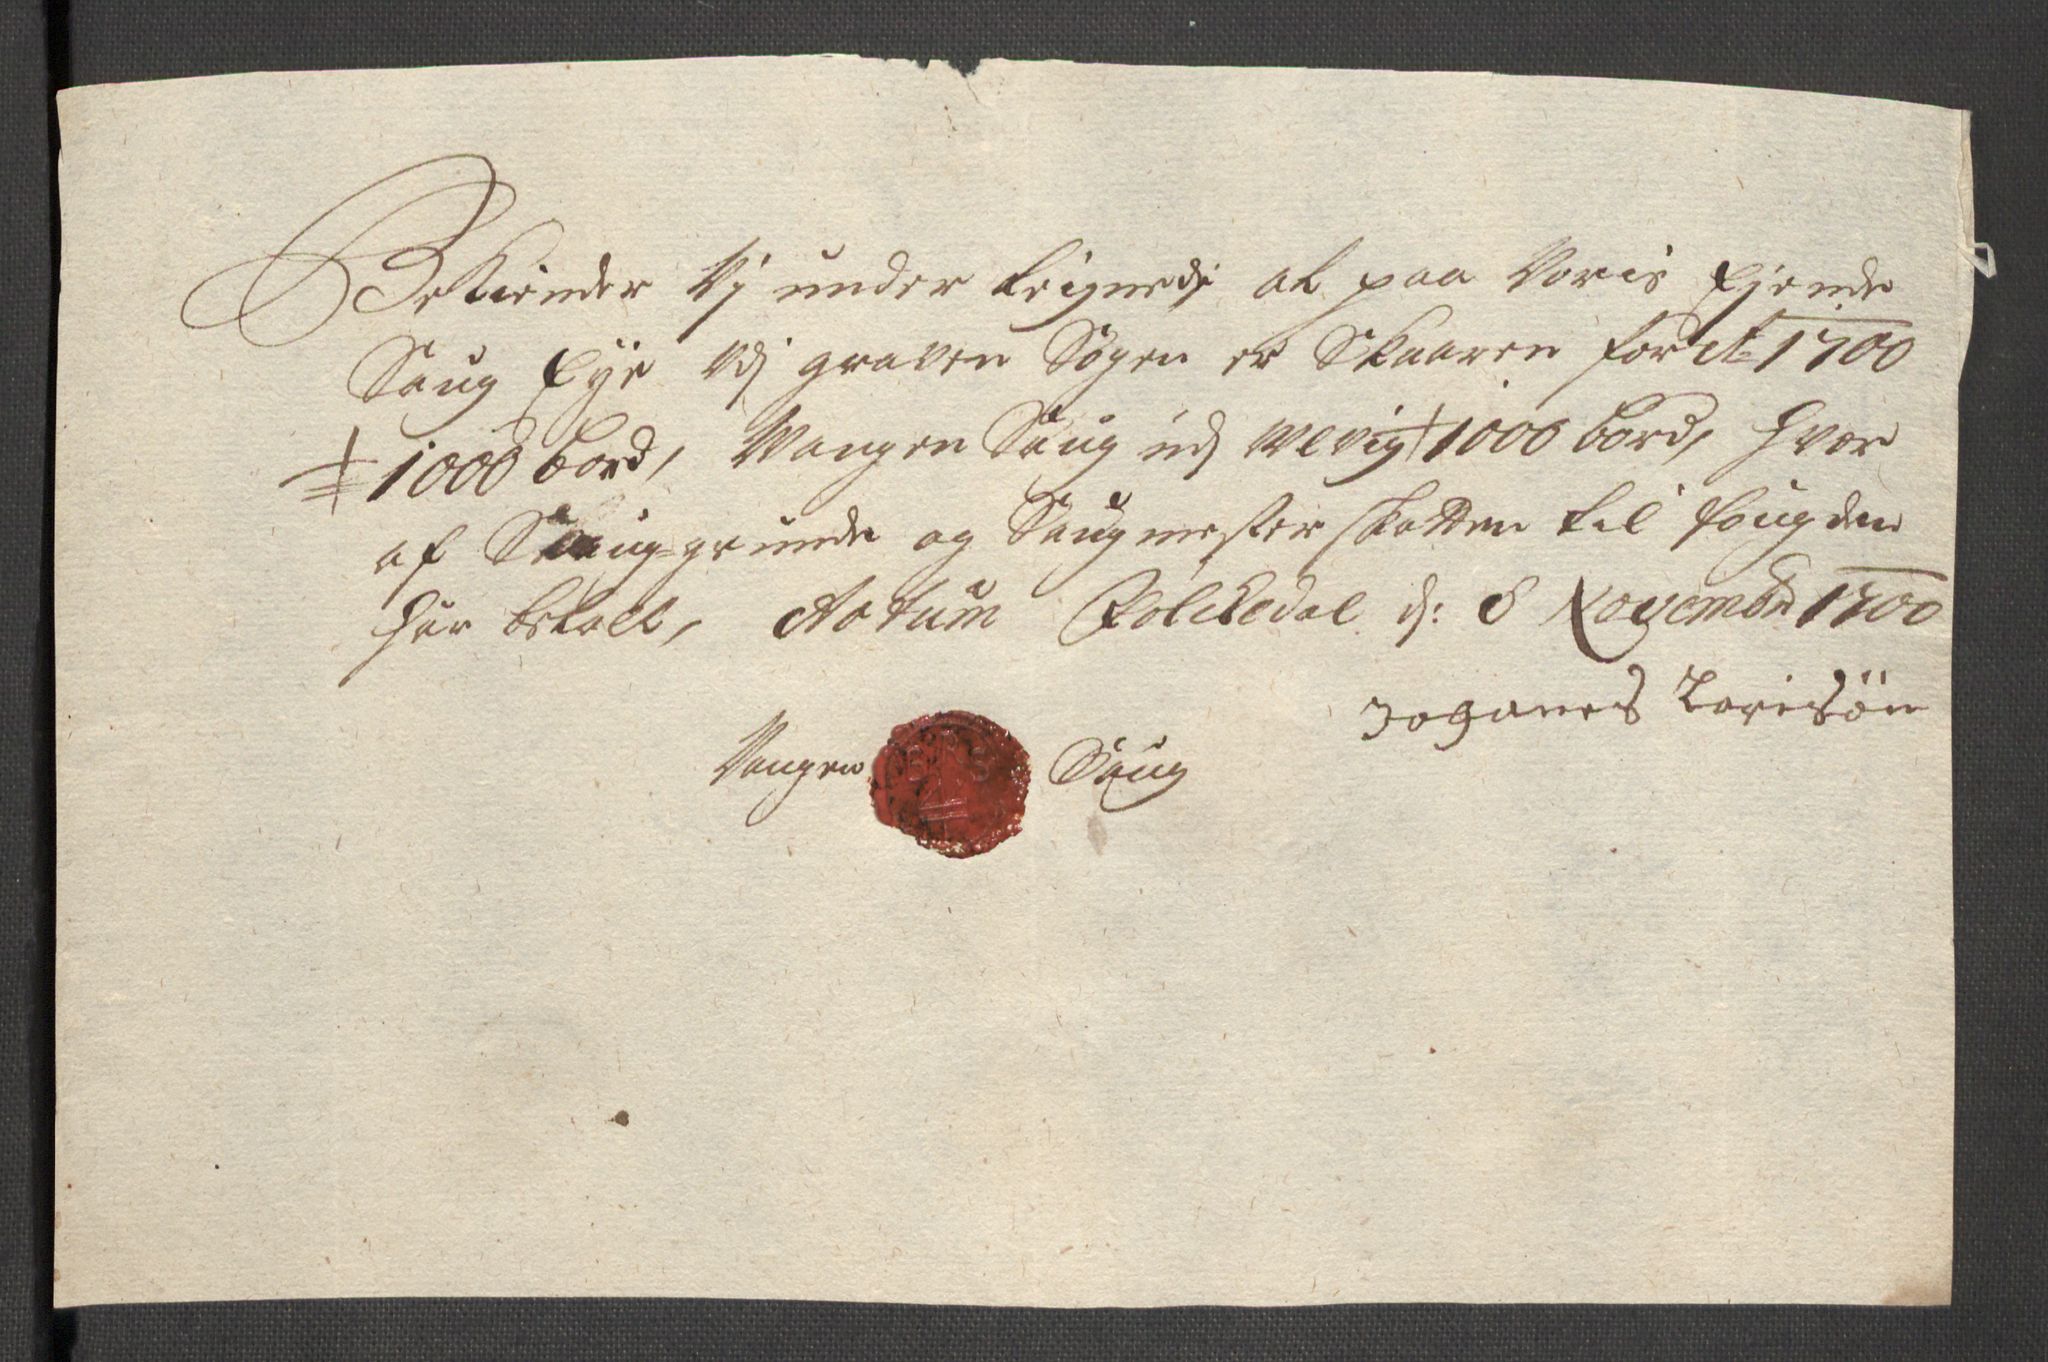 Bekiender Vj under teignede at paa Voris Ejende
Saug Eye vdj graven Sogen er Skaaren for Ao 1700
1000 bord, Vangen Saug udj Ulvig 1000 bord, hvor
af Saug-grunde og Saugmester skatten til fougden
har betalt, Actum Eolckedal d: 8 Novembr 1700
Johanes Larisön
Vangen Saug